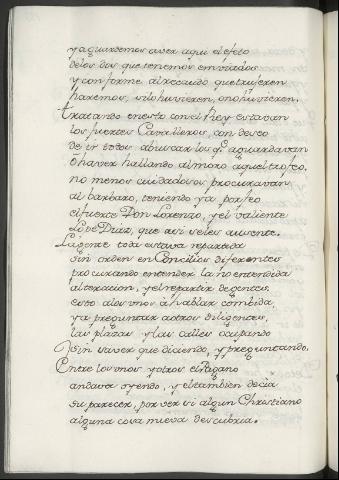 y aguardemos a ver aqui el efeto
delos dos que tenemos embiados
y conforme al recaudo que truxeren
haremos, si lo huvieren, o no huvieren.
Tratando en esto con el Rey estavan
los fuertes Cavalleros, con deseo
de ir todos a buscar los q̃. aguardavan
ò haver hallando al moro aquel trofeo,
no menos cuidadosos procuravan
al barbaro, teniendo ya por feo
el fuerte Don Lorenzo, y el valiente
Lope Diaz, que assi se les ausente.
La gente toda estava repartida
sin orden en Concilios diferentes
procurando entender la no entendida
alteracion, y el repartir de gentes.
esto a los unos à hablar combida,
ya preguntar a otros diligentes,
las plazas y las calles ocupando
sin saver que diciendo, y preguntando.
Entre los unos y otros el Pagano
andava oyendo, y el tambien decia
su parecer, por ver si algun Christiano
alguna cosa nueva descubria.